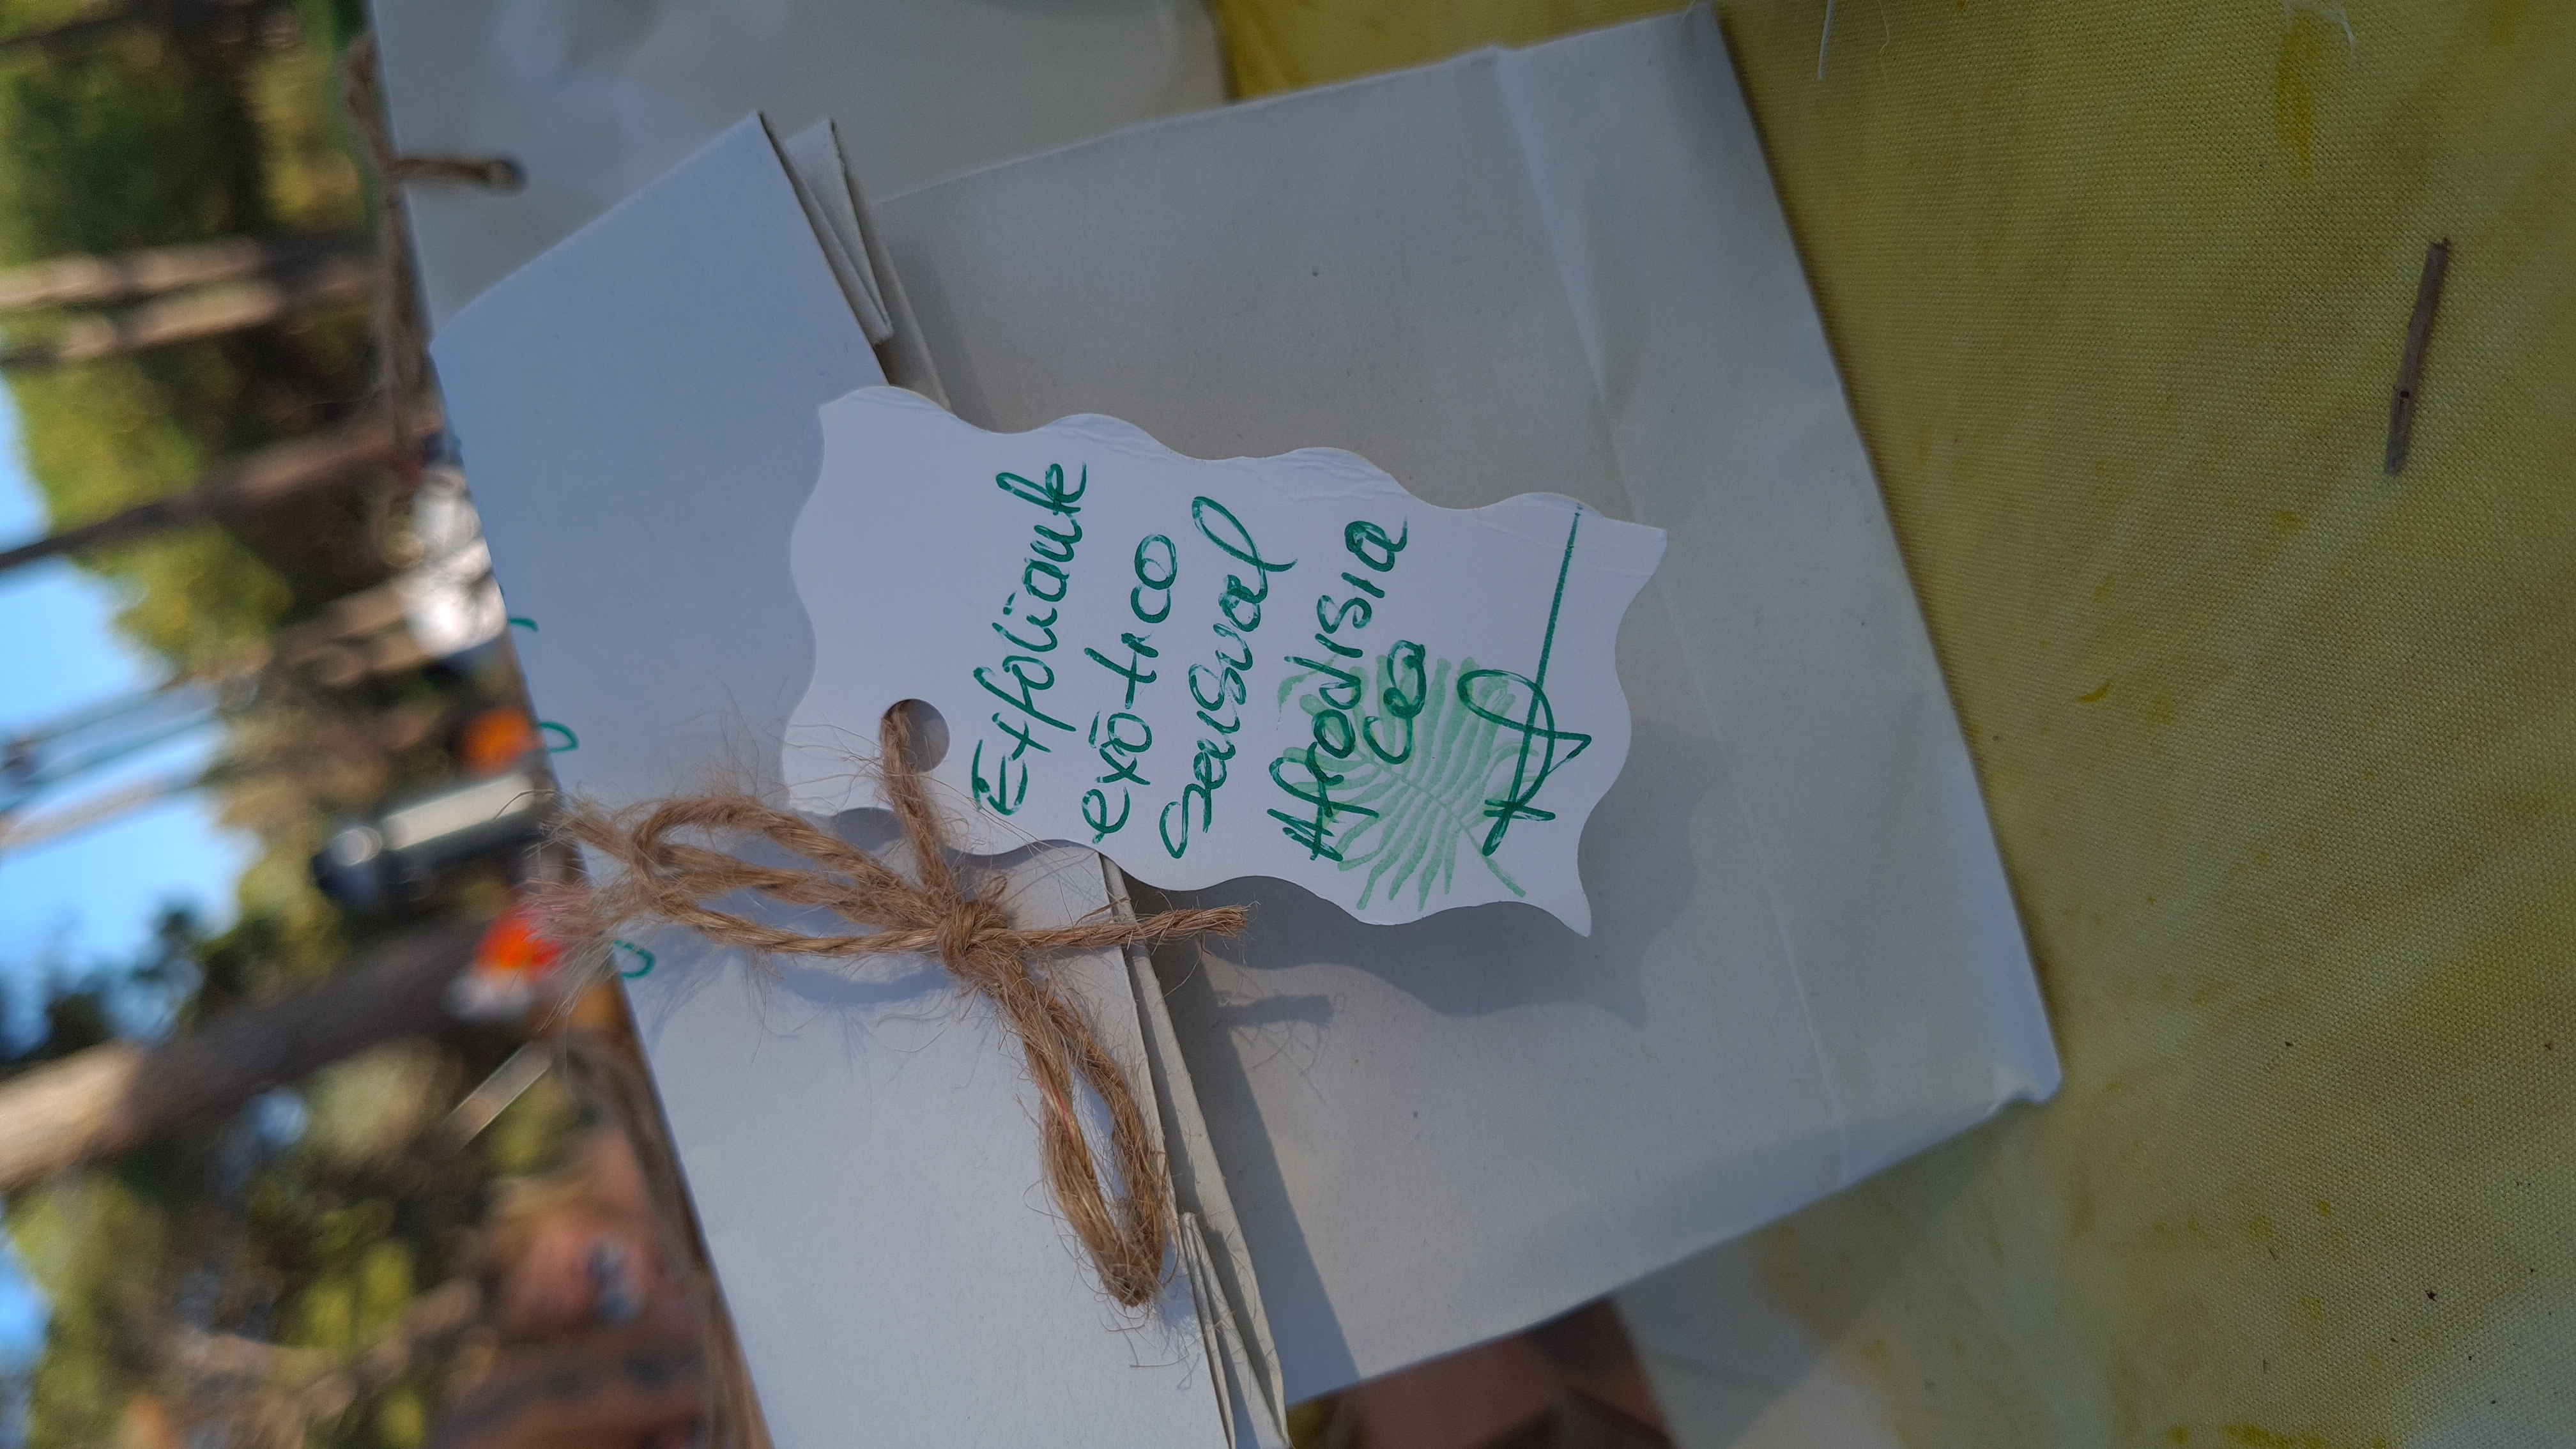 Exfoliante
exótico
Sensual
Afrodisia
co